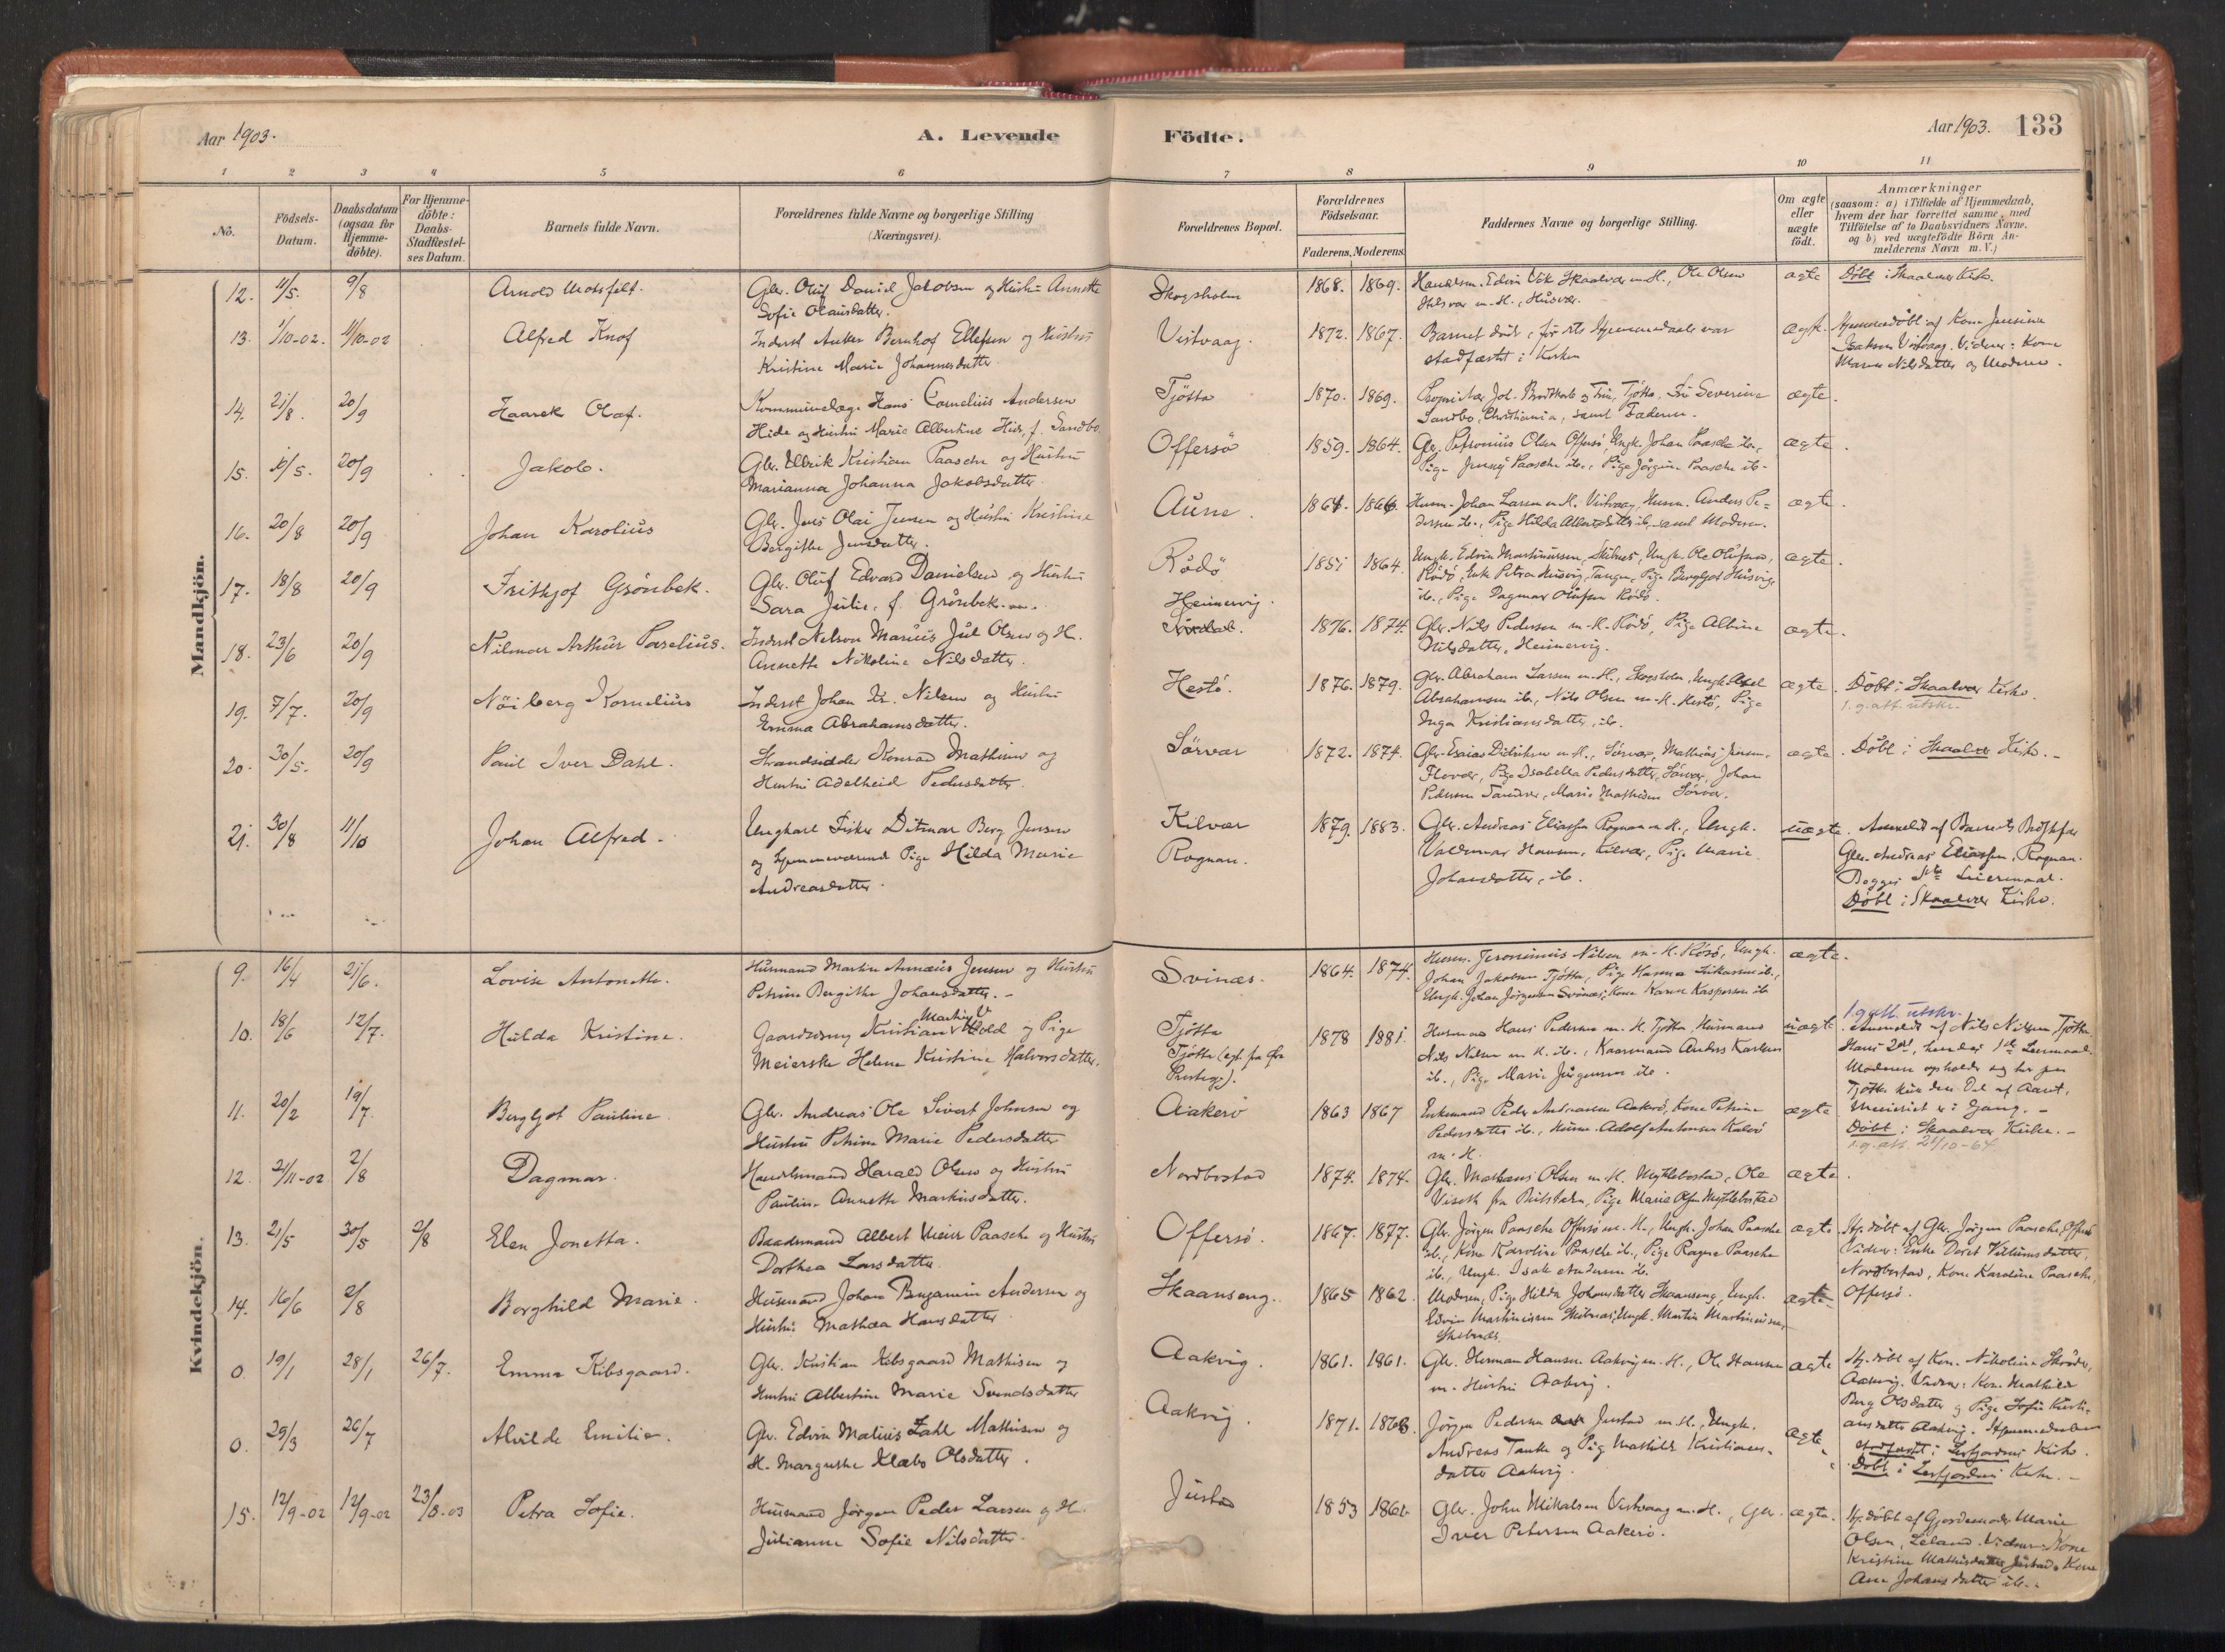 Aar 1903.
A. Levende Födte.
Aar 1903. 133
1 2 3 4 5 6 7 8 9 10 11
No.
Födsels-Datum.
Daabsdatum (ogsaa for Hjemme-döbte).
For Hjemme-döbte: Daabs-Stadfæstel-ses Datum.
Barnets fulde Navn.
Forældrenes fulde Navne og borgerlige Stilling (Næringsvei).
Forældrenes Bopæl.
Forældrenes Födselsaar.
Faderens. Moderens.
Faddernes Navne og borgerlige Stilling.
Om ægte eller uægte födt.
Anmærkninger (saasom: a) i Tilfælde af Hjemmedaab, hvem der har forrettet samme, med Tilföielse af to Daabsvidners Navne, og b) ved uægtefödte Börn Anmelderens Navn m. V.)
Mandkjön.
12. 11/5. 9/8 Arnold Motzfelt.
Gbr. Oluf Daniel Jakobsen og Hustru Annette
Sofie Olausdatter.
Skogsholm 1868. 1869.
Handelsm. Edvin Vik Skaalvær m. H., Ole Olsen
m. H., Husvær.
ægte Döbt i Skaalvær Kirke.
13. 1/10-02. 11/10-02 Alfred Knof
Inderst Anker Bernhof Ellefsen og Hustru
Kristine Marie Johannesdatter
Vistvaag. 1872. 1867.
Barnet döde, för dets Hjemmedaab var
stadfæstet i Kirken
ægte. Hjemmedöbt af Kone Jensine
Isaksen Vistvaag. Vidner: Kone
Maren Nilsdatter og Moderen.
14. 21/8. 20/9 Haarek Olaf.
Kommunelæge Hans Cornelius Andersen
Hide og Hustru Marie Albertine Hide, f. Sandbo.
Tjötta 1870. 1869.
Proprietær Joh. Brodtkorb og Frue, Tjötta, Fru Severine
Sandbo, Christiania, samt Faderen.
ægte.
15. 16/5. 20/9 Jakob.
Gbr. Ulrik Kristian Paasche og Hustru
Marianna Johanna Jakobsdatter
Offersö 1859. 1864.
Gbr. Petronius Olsen Offersö, Ungk. Johan Paasche ib.,
Pige Jenny Paasche ib., Pige Jörgine Paasche ib.
ægte.
16. 20/8 20/9 Johan Karolius
Gbr. Jens Olai Jensen og Hustru Kristine
Bergithe Jensdatter.
Aune. 1864. 1866.
Husm. Johan Larsen m. H. Vistvaag, Husm. Anders Pe-
dersen ib., Pige Hilda Albertsdatter ib., samt Moderen.
ægte.
17. 18/8 20/9 Frithjof Grönbek.
Gbr. Oluf Edvard Danielsen og Hustru
Sara Julie, f. Grönbek.
Rödö 1851 1864.
Ungk. Edvin Martinussen, Skibnes, Ungk. Ole Olufsen,
Rödö, Enke Petra Husvig, Tangen, Pige Bergljot Husvig
ib., Pige Dagmar Olufsen Rödö.
ægte.
18. 23/6 20/9 Nilmar Arthur Parelius.
Inderst Nelson Marius Jul Olsen og H.
Annette Nikoline Nilsdatter.
Heimervig.
1876. 1874.
Gbr. Nils Pedersen m. H. Rödö, Pige Albine
Nilsdatter, Heimervig.
ægte.
19. 7/7. 20/9 Nöiberg Kornelius
Inderst Johan Kr. Nilsen og Hustru
Emma Abrahamsdatter.
Hestö. 1876. 1879.
Gbr. Abraham Larsen m. H., Skogsholm, Ungk. Axel
Abrahamsen ib., Nils Olsen m. H. Hestö, Pige
Inga Kristiansdatter, ib.
ægte. Döbt i Skaalvær Kirke.
1. g. att. utskr.
20. 30/5. 20/9 Paul Iver Dahl.
Strandsidder Konrad Mathisen og
Hustru Adelheid Pedersdatter.
Sörvær 1872. 1874.
Gbr. Esaias Didriksen m. H., Sörvær, Mathias Jensen,
Flovær, Pige Isabella Pedersdatter, Sörvær, Johan
Pedersen Sandvær, Marie Mathisen Sörvær.
ægte. Döbt i Skaalvær Kirke.
21. 30/8 11/10 Johan Alfred.
Ungkarl Fisker Ditmar Berg Jensen
og hjemmeværende Pige Hilda Marie
Andreasdatter.
Kilvær
Rognan.
1879. 1883.
Gbr. Andreas Eliassen Rognan m. H., Ungk.
Valdemar Hansen, Kilvær, Pige Marie
Johansdatter, ib.
uægte. Anmeldt af Barnets
Gbr. Andreas Eliassen, Rognan.
Begges 1ste Leiermaal.
Döbt i Skaalvær Kirke.
Kvindekjön.
9. 16/4 21/6. Lovise Antonette.
Husmand Martin Annæus Jensen og Hustru
Petrine Bergithe Johansdatter.
Svinæs. 1864. 1874.
Husm. Jeronimus Nilsen m. H. Rösö, Ungk.
Johan Jakobsen Tjötta, Pige Hanna Eriksen ib.,
Ungk. Johan Jörgensen Svinæs, Kone Karen Kaspersen ib
ægte.
10. 18/6 12/7. Hulda Kristine.
Gaardsdreng Kristian Martin Wold og Pige
Meierske Helene Kristine Halvorsdatter.
Tjötta
Tjötta (egtl. fra
Præstegj.).
1878 1881.
Husmand Hans Pedersen m. H. Tjötta, Husmand
Nils Nilsen m. H. ib., Kaarmand Anders Karlsen
ib., Pige Marie Jörgensen ib.
uægte
1. g. att. utskr.
Anmeldt af Nils Nilsen, Tjötta.
Hans 2det, hendes 1ste Leiermaal.
Moderen opholder sig her paa
Tjötta kun den Del af Aaret,
Meieriet er i Gang.
11. 20/2 19/7. Bergljot Pauline.
Gbr. Andreas Ole Sivert Johnsen og
Hustru Petrine Marie Pedersdatter
Aakerö 1863 1867
Enkemand Peder Andreasen Aakerö, Kone Petrine
Pedersdatter ib., Husm. Adolf Antonsen Kalvö
m. H.
ægte Döbt i Skaalvær Kirke.
1. g. att. 21/10-64
12. 21/11-02 2/8 Dagmar.
Handelsmand Harald Olsen og Hustru
Pauline Annette Martinsdatter.
Nordbostad 1874. 1874.
Gbr. Mathæus Olsen m. H. Myklebostad, Ole
Viseth fra, Pige Marie Olsen Myklebostad
ægte.
13. 21/5 30/5 2/8 Elen Jonetta.
Baadsmand Albert Meier Paasche og Hustru
Dorthea Larsdatter
Offersö. 1867. 1877.
Gbr. Jörgen Paasche Offersö m. H., Ungk. Johan Paasche
ib., Kone Karoline Paasche ib., Pige Ragna Paasche
ib., Ungk. Isak Andersen ib.
ægte Hj. döbt af Gbr. Jörgen Paasche, Offersö
Vidner: Enke Doret Villumsdatter,
Nordbostad, Kone Karoline Paasche,
Offersö.
14. 16/6 2/8 Borghild Marie.
Husmand Johan Benjamin Andersen og
Hustru Mathea Hansdatter
Skaanseng. 1865 1862.
Moderen, Pige Hilda Johansdatter Skaanseng, Ungk.
Edvin Martinussen Skibnæs, Ungk. Martin Martinussen,
Skibnæs.
ægte
0. 19/1 28/1 26/7. Emma Kibsgaard.
Gbr. Kristian Kibsgaard Mathisen og
Hustru Albertine Marie Svendsdatter
Aakvig. 1861. 1861.
Gbr. Herman Hansen Aakvig m. H., Ole Hansen
m. Hustru Aakvig.
ægte Hj. döbt af Kone Nikoline Skröder,
Aakvig. Vidner: Kone Mathilde
Berg Olsdatter og Pige Sofie Kristi-
ansdatter Aakvig. Hjemmedaaben
stadfæstet i Leirfjordens Kirke.
0. 29/3 26/7 Alvilde Emilie.
Gbr. Edvin Matius Zahl Mathisen og
H. Margrethe Klæbo Olsdatter.
Aakvig. 1871. 1868.
Jörgen Pedersen Justad m. H., Ungk.
Andreas Tanke og Pige Mathilde Kristians-
datter Aakvig.
ægte. Döbt i Leirfjordens Kirke.
15. 12/9-02 12/9-02 23/8-03 Petra Sofie.
Husmand Jörgen Peder Larsen og H.
Julianne Sofie Nilsdatter.
Justad 1853 1861
Gbr. John Mikalsen Vistvaag m. H., Gbr.
Iver Petersen Aakerö.
ægte. Hj. döbt af Gjordemoder Marie
Olsen, Leland. Vidner: Kone
Kristine Mathisdatter Justad, Kone
Ane Johansdatter ib.